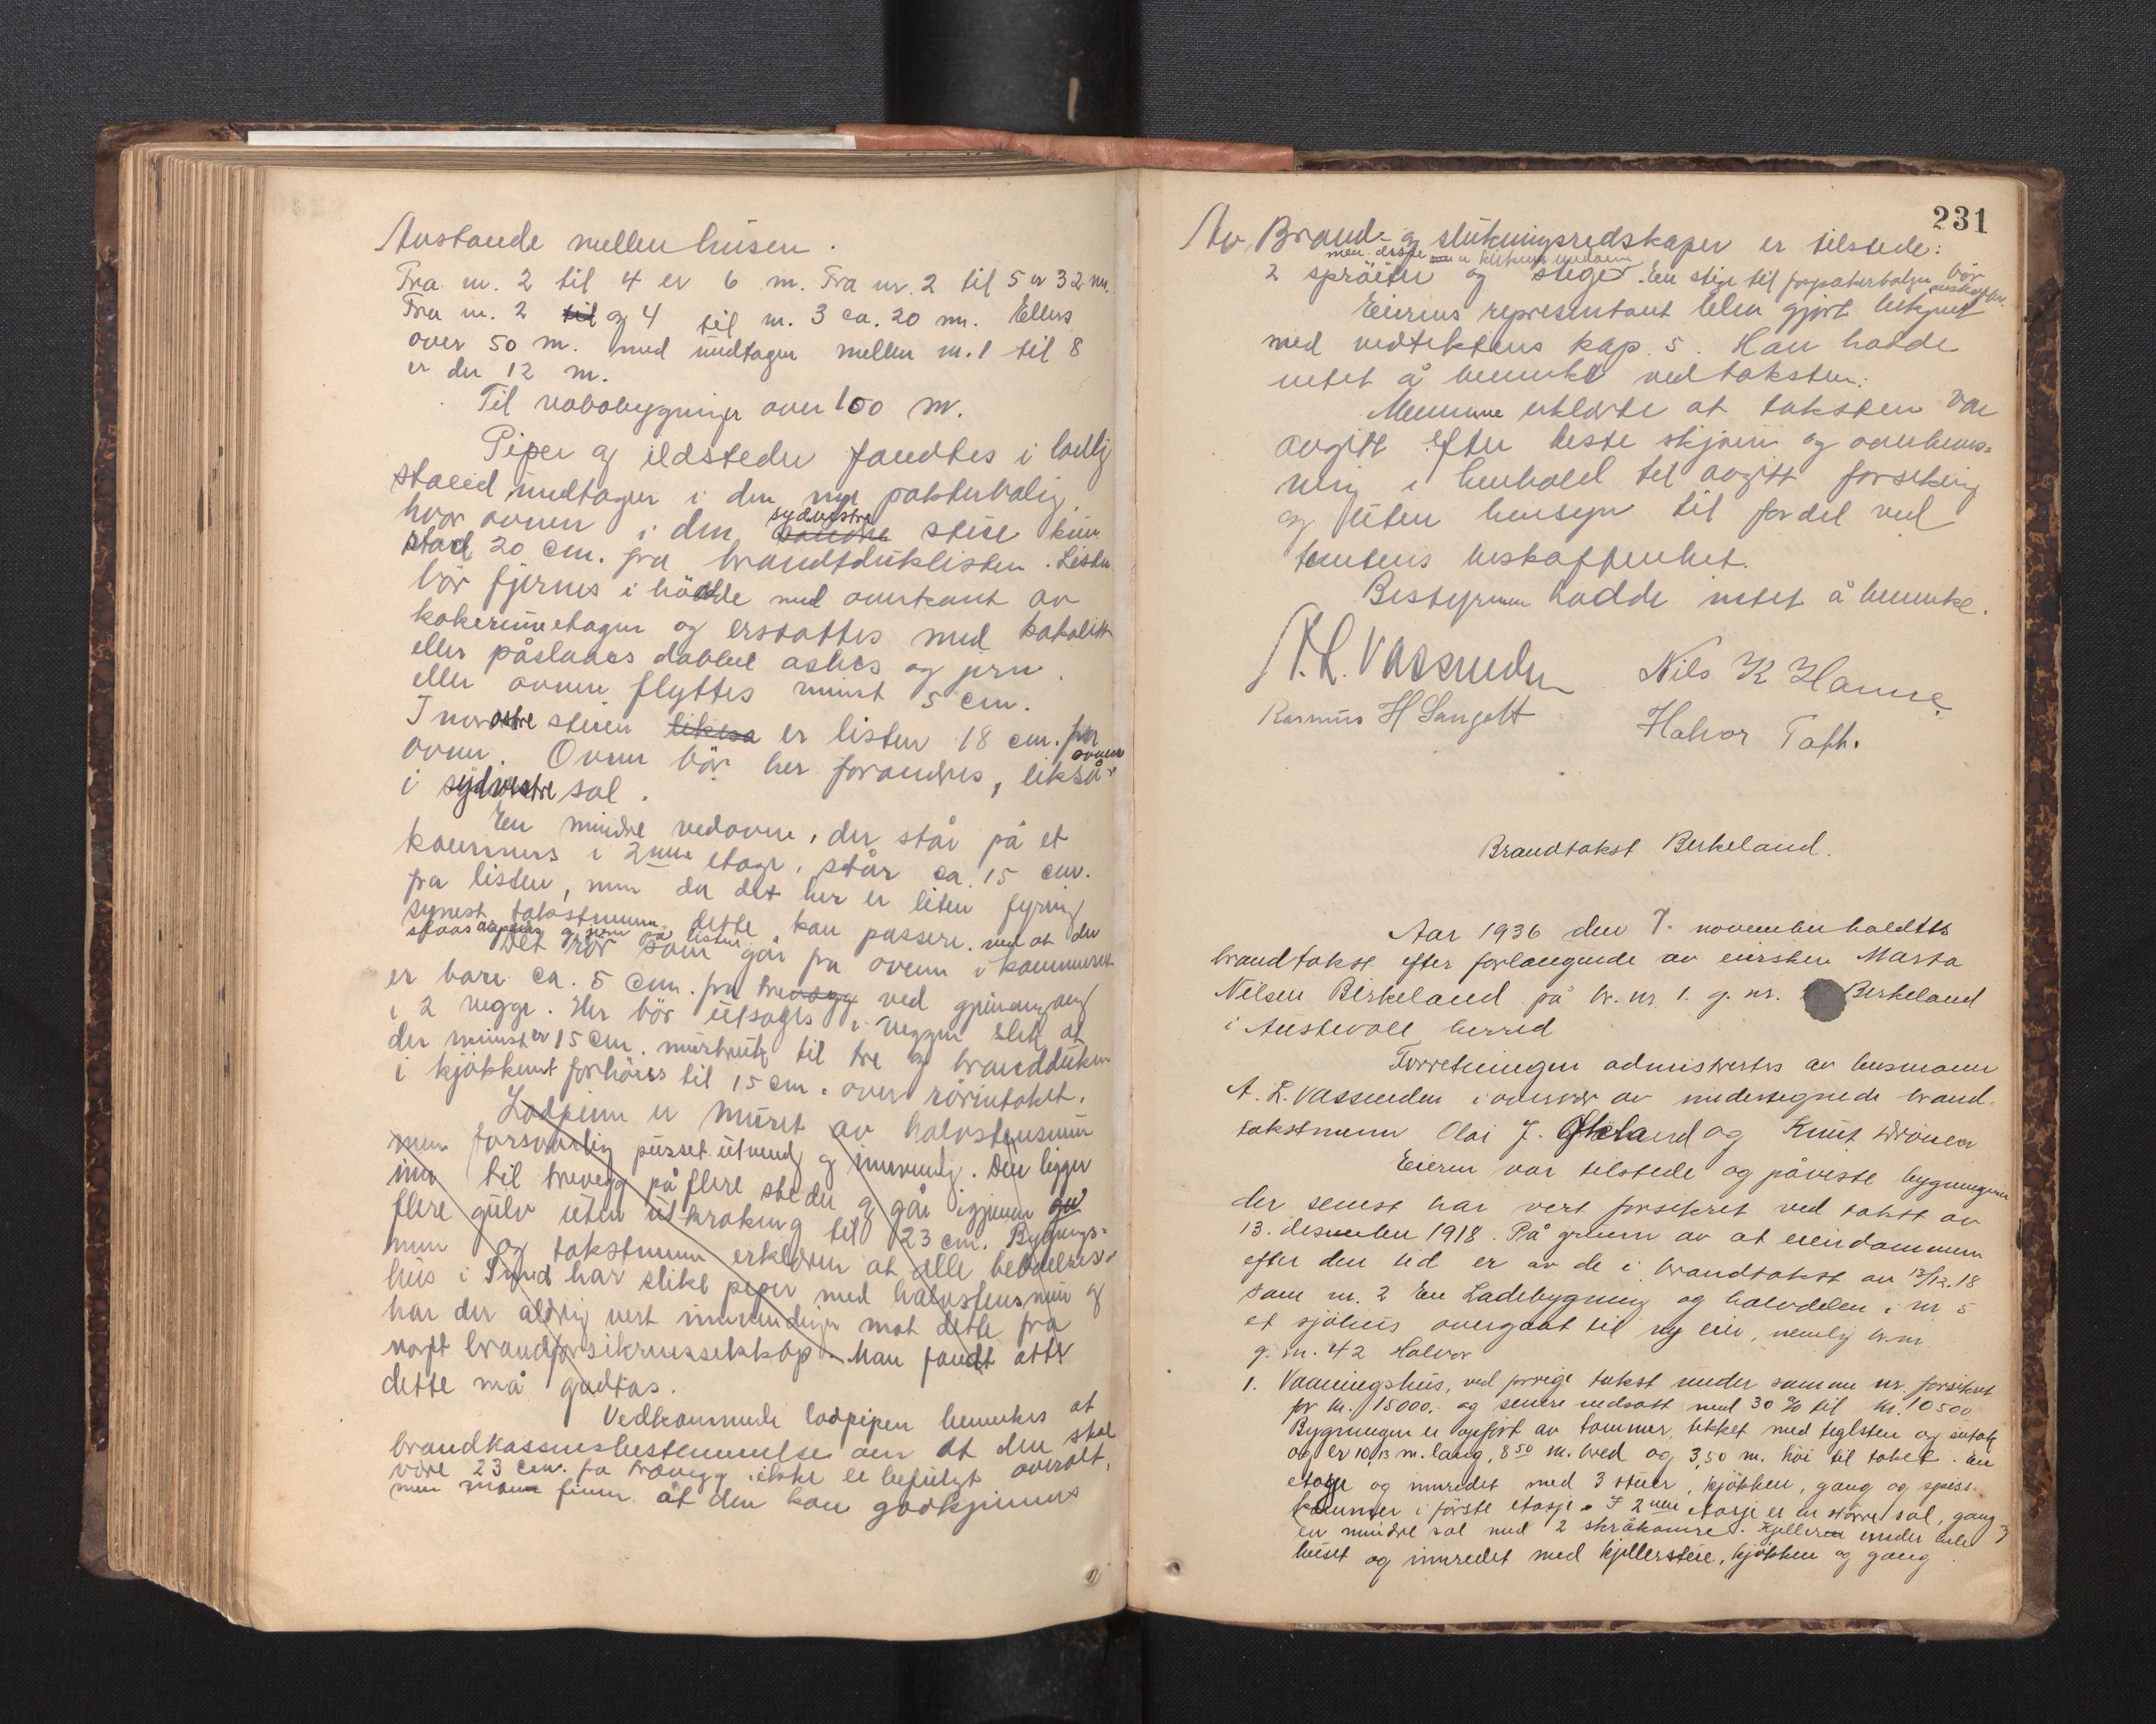 Avstande mellem husen.
Fra nr. 2 til 4 er 6 m. Fra nr. 2 til 5 er 32 m.
Fra nr. 2 til og 4 til nr. 3 ca. 20 m. Ellers
over 50 m. med undtagen mellem nr. 1 til 8
er der 12 m.
Til nabobygninger over 100 m.
Piper og ildsteder fandtes i lovlig
stand undtagen i den nye pakterbolig,
hvor ovnen i den søndre sydvestre stue kun
stod 20 cm. fra brandtduklisten. Listen
bør fjernes i høide med overkant av
kokerumetagen og erstattes med
eller påslaaes dobbel asbes og jern.
eller ovnen flyttes minst 5 cm.
I norostre stuen liksaa er listen 18 cm. fra
ovnen. Ovnen bør her forandres, likså ovnen
i sydvestre sal.
En mindre vedovne, der står på et
kammers i 2nen etage, står ca. 15 cm.
fra listen, men da det her er liten fyring
synest takstmenn dette kan passere. ved at der
slaaes og jern på listen
Det rør som går fra ovnen i kammerset
er bare ca. 5 cm. fra trevegg ved gjennemgang
i 2 vegge. Her bør utsages i veggen slik at
der minst er 15 cm. til tre og brandduken
i kjøkkenet forhøies til 15 cm. over rørintaket.
Lodpipen er muret av halvstensmur
men forsvarlig pusset utvendig og innvendig. Den ligger
inn til trevegg på flere steder og går igjennem
flere gulv uten utkraking til 23 cm. Bygnings-
menn og takstmenn erklærer at alle beboelses-
hus i Sund har slike piper med halvstensmur og
har der aldrig vert innvendinger mot dette fra
norft brandforsikrusselskap. Man fandt atter
dette må godtas.
Vedkommende lodpipen bemerkes at
brandkassensbestemmelse om at den skal
være 23 cm. fra trævegg ikke er befulgt overalt,
men man finner at den kan godkjennes
231
Av Brand- og slukningsredskaper er tilstede:
men disse
2 sprøiter og steger. En stige til forpakterboligen bør
Eierens representant blev gjort bekjent
med vedtektens kap. 5. Han hadde
intet å bemerke ved taksten.
Mennene erklærte at taksten var
avgitt efter beste skjønn og overbevis-
ning i henhold til avgitt forsikring
og uten hensyn til fordel ved
tomtens beskaffenhet.
Bestyreren hadde intet å bemerke.
A. L. Vassenden Nils K Hanne
Rasmus H Sangolt Halvor Toft.
Brandtakst Berkeland.
Aar 1936 den 7. november holdttes
brandtakst efter forlangende av eiersken Marta
Nilsen Berkeland på br. nr 1. g. nr. Berkeland
i Austevoll herred
Forretningen admistrertes av lensmann
A. L. Vassenden i overvær av undertegnede brand-
takstmenn Olai J. Økland og Knut Drønen
Eieren var tilstede og påviste bygningen
der senest har vert forsikret ved takst av
13. desember 1918. På grunn av at eiendommen
efter den tid er av de i brandtakst av 13/12.18
som nr. 2 En Ladebygning og halvdelen i nr 5
et sjøhus overgaat til ny eier, nemlig br. nr
g. nr. 42 Halvor
1. Vaaningshus, ved forrige takst under samme nr forsikret
for kr. 15000. og senere nedsatt med 30 % til kr. 10500
Bygningen er opført av tømmer, tekket med teglsten og sutak
og er 10,13 m. lang, 8,50 m. bred og 3,50 m. høi til taket. En
etage og innredet med 3 stuer, kjøkken, gang og spiss-
kammer i første etasje. I 2nen etasje er en større sal, gang
en mindre sal med 2 skråkamre. Kjelleren under hele
huset og innredet med kjellerstue, kjøkken og gang